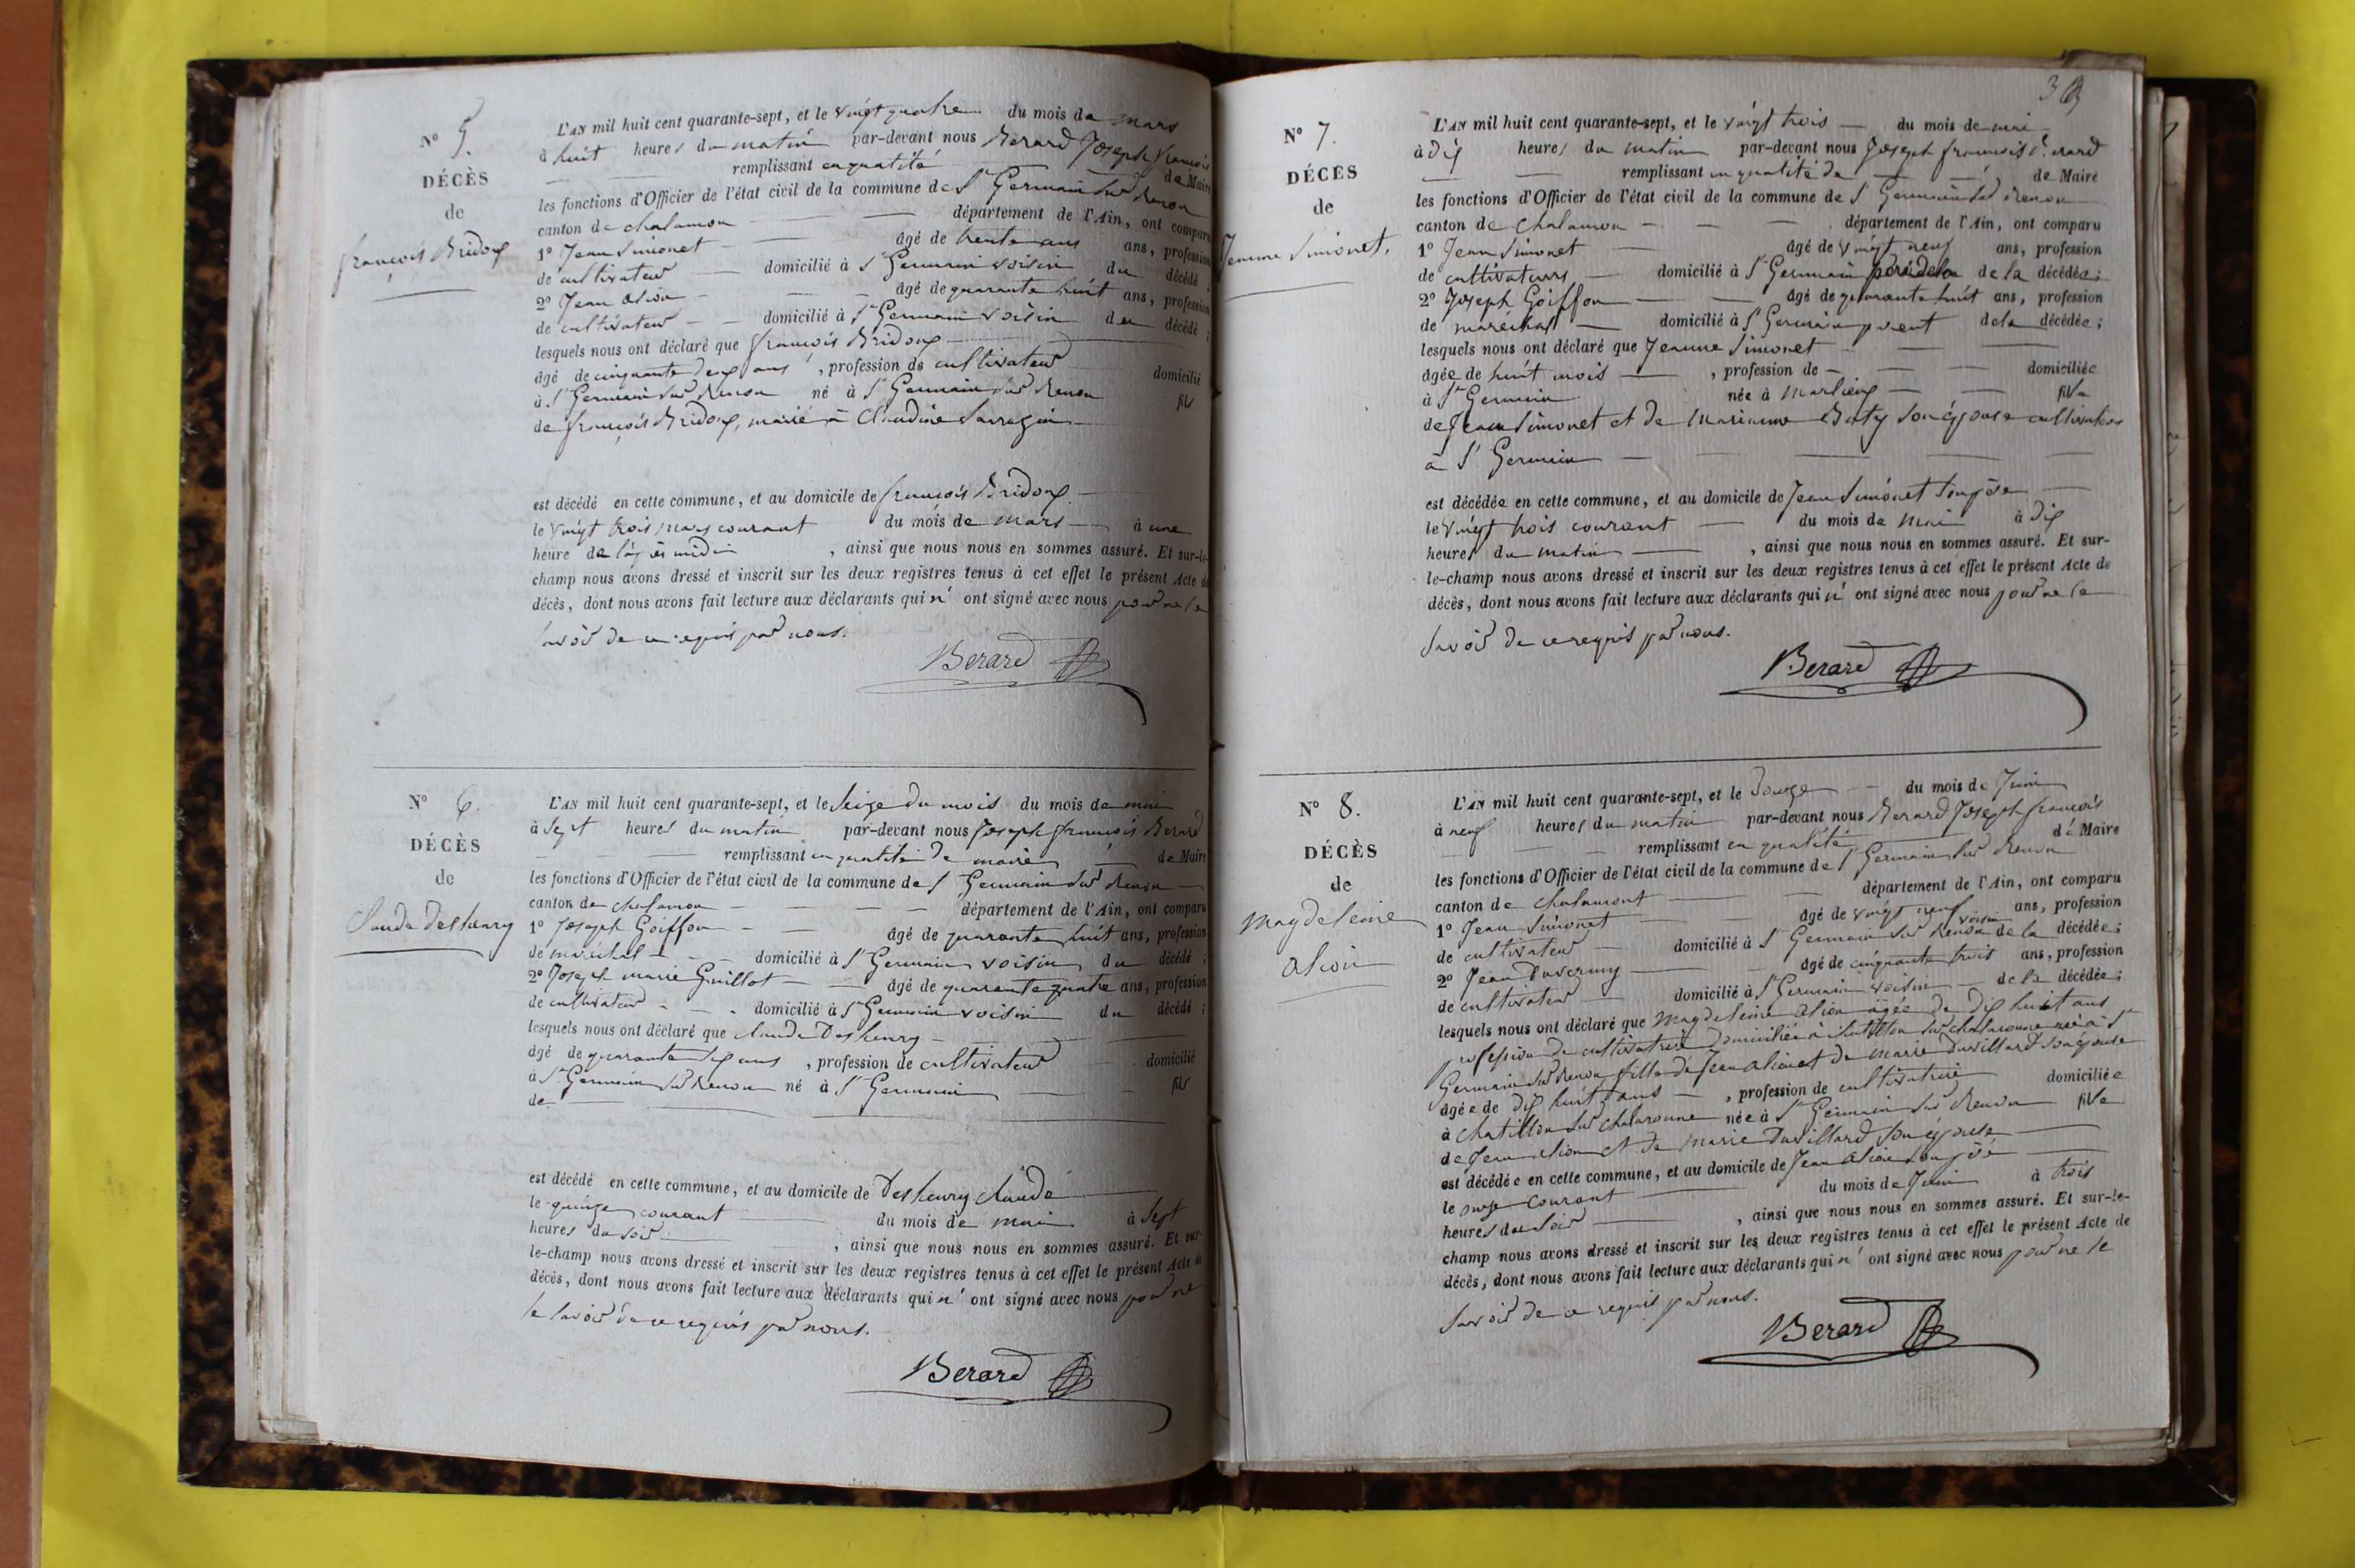 N° 5.
DÉCÈS
de
françois Bridon
L'AN mil huit cent quarante-sept, et le vingt quatre du mois de mars
à huit heures du matin par-devant nous Berard Joseph françois
remplissant en qualité de Maire
les fonctions d'Officier de l'état civil de la commune de St Germain sur Renon
canton de chalamon département de l'Ain, ont comparu
1° Jean Simonet âgé de trente ans ans, profession
de cultivateur domicilié à St Germain voisin du décédé ;
2° Jean Alion âgé de quarante huit ans, profession
de cultivateur domicilié à St Germain voisin du décédé ;
lesquels nous ont déclaré que françois Bridon
âgé de cinquante deux ans, profession de cultivateur domicilié
à St Germain sur Renon né à St Germain sur Renon fils
de françois Bridon, marié à Claudine Sarrazin
est décédé en cette commune, et au domicile de françois Bridon
le vingt trois mars courant du mois de mars à une
heure de l'après midi, ainsi que nous nous en sommes assuré. Et sur-le-
champ nous avons dressé et inscrit sur les deux registres tenus à cet effet le présent Acte de
décès, dont nous avons fait lecture aux déclarants qui n' ont signé avec nous pour ne le
savoir de ce requis par nous.
Berard
N° 6.
DÉCÈS
de
Claude Deshenry
L'AN mil huit cent quarante-sept, et le Seize du mois du mois de mai
à sept heures du matin par-devant nous Joseph françois Berard
remplissant en qualité de maire de Maire
les fonctions d'Officier de l'état civil de la commune de St Germain sur Renon
canton de chalamon département de l'Ain, ont comparu
1° Joseph Goiffon âgé de quarante huit ans, profession
de maréchal domicilié à St Germain voisin du décédé ;
2° Joseph marie Guillot âgé de quarante quatre ans, profession
de cultivateur domicilié à St Germain voisin du décédé ;
lesquels nous ont déclaré que claude Deshenry
âgé de quarante six ans, profession de cultivateur domicilié
à St Germain sur Renon né à St Germain fils
de
est décédé en cette commune, et au domicile de Deshenry claude
le quinze courant du mois de mai à sept
heures du soir, ainsi que nous nous en sommes assuré. Et sur-
le-champ nous avons dressé et inscrit sur les deux registres tenus à cet effet le présent Acte de
décès, dont nous avons fait lecture aux déclarants qui n' ont signé avec nous pour ne
le savoir de ce requis par nous.
Berard
N° 7.
DÉCÈS
de
Jeanne Simonet,
L'AN mil huit cent quarante-sept, et le vingt trois du mois de mai
à dix heures du matin par-devant nous Joseph françois Berard
remplissant en qualité de de Maire
les fonctions d'Officier de l'état civil de la commune de St Germain sur Renon
canton de Chalamon département de l'Ain, ont comparu
1° Jean Simonet âgé de vingt neuf ans, profession
de cultivateurs domicilié à St Germain père de la de la décédée ;
2° Joseph Goiffon âgé de quarante huit ans, profession
de maréchal domicilié à St Germain parent de la décédée ;
lesquels nous ont déclaré que Jeanne Simonet
âgée de huit mois, profession de domiciliée
à St Germain née à Marlieux fille
de Jean Simonet et de Marianne Baty son épouse cultivateurs
à St Germain
est décédée en cette commune, et au domicile de Jean Simonet son père
le vingt trois courant du mois de Mai à dix
heures du matin, ainsi que nous nous en sommes assuré. Et sur-
le-champ nous avons dressé et inscrit sur les deux registres tenus à cet effet le présent Acte de
décès, dont nous avons fait lecture aux déclarants qui n' ont signé avec nous pour ne le
savoir de ce requis par nous.
Berard
N° 8.
DÉCÈS
de
Magdeleine
Alion
L'AN mil huit cent quarante-sept, et le Douze du mois de Juin
à neuf heures du matin par-devant nous Berard Joseph françois
remplissant en qualité de Maire
les fonctions d'Officier de l'état civil de la commune de St Germain sur Renon
canton de Chalamont département de l'Ain, ont comparu
1° Jean Simonet âgé de vingt neuf ans, profession
de cultivateur domicilié à St Germain sur Renon voisin de la décédée ;
2° Jean Duverny âgé de cinquante trois ans, profession
de cultivateur domicilié à St Germain voisin de la décédée ;
lesquels nous ont déclaré que Magdeleine Alion âgée de dix huit ans
profession de cultivatrice domiciliée à chatillon sur chalaronne née à St
Germain sur Renon fille de Jean Alion et de Marie Duvillard son épouse
âgée de dix huit ans, profession de cultivatrice domiciliée
à Chatillon sur chalaronne née à St Germain sur Renon fille
de Jean Alion et de Marie Duvillard son épouse
est décédée en cette commune, et au domicile de Jean Alion son père
le onze courant du mois de Juin à trois
heures du soir, ainsi que nous nous en sommes assuré. Et sur-le-
champ nous avons dressé et inscrit sur les deux registres tenus à cet effet le présent Acte de
décès, dont nous avons fait lecture aux déclarants qui n' ont signé avec nous pour ne le
savoir de ce requis par nous.
Berard